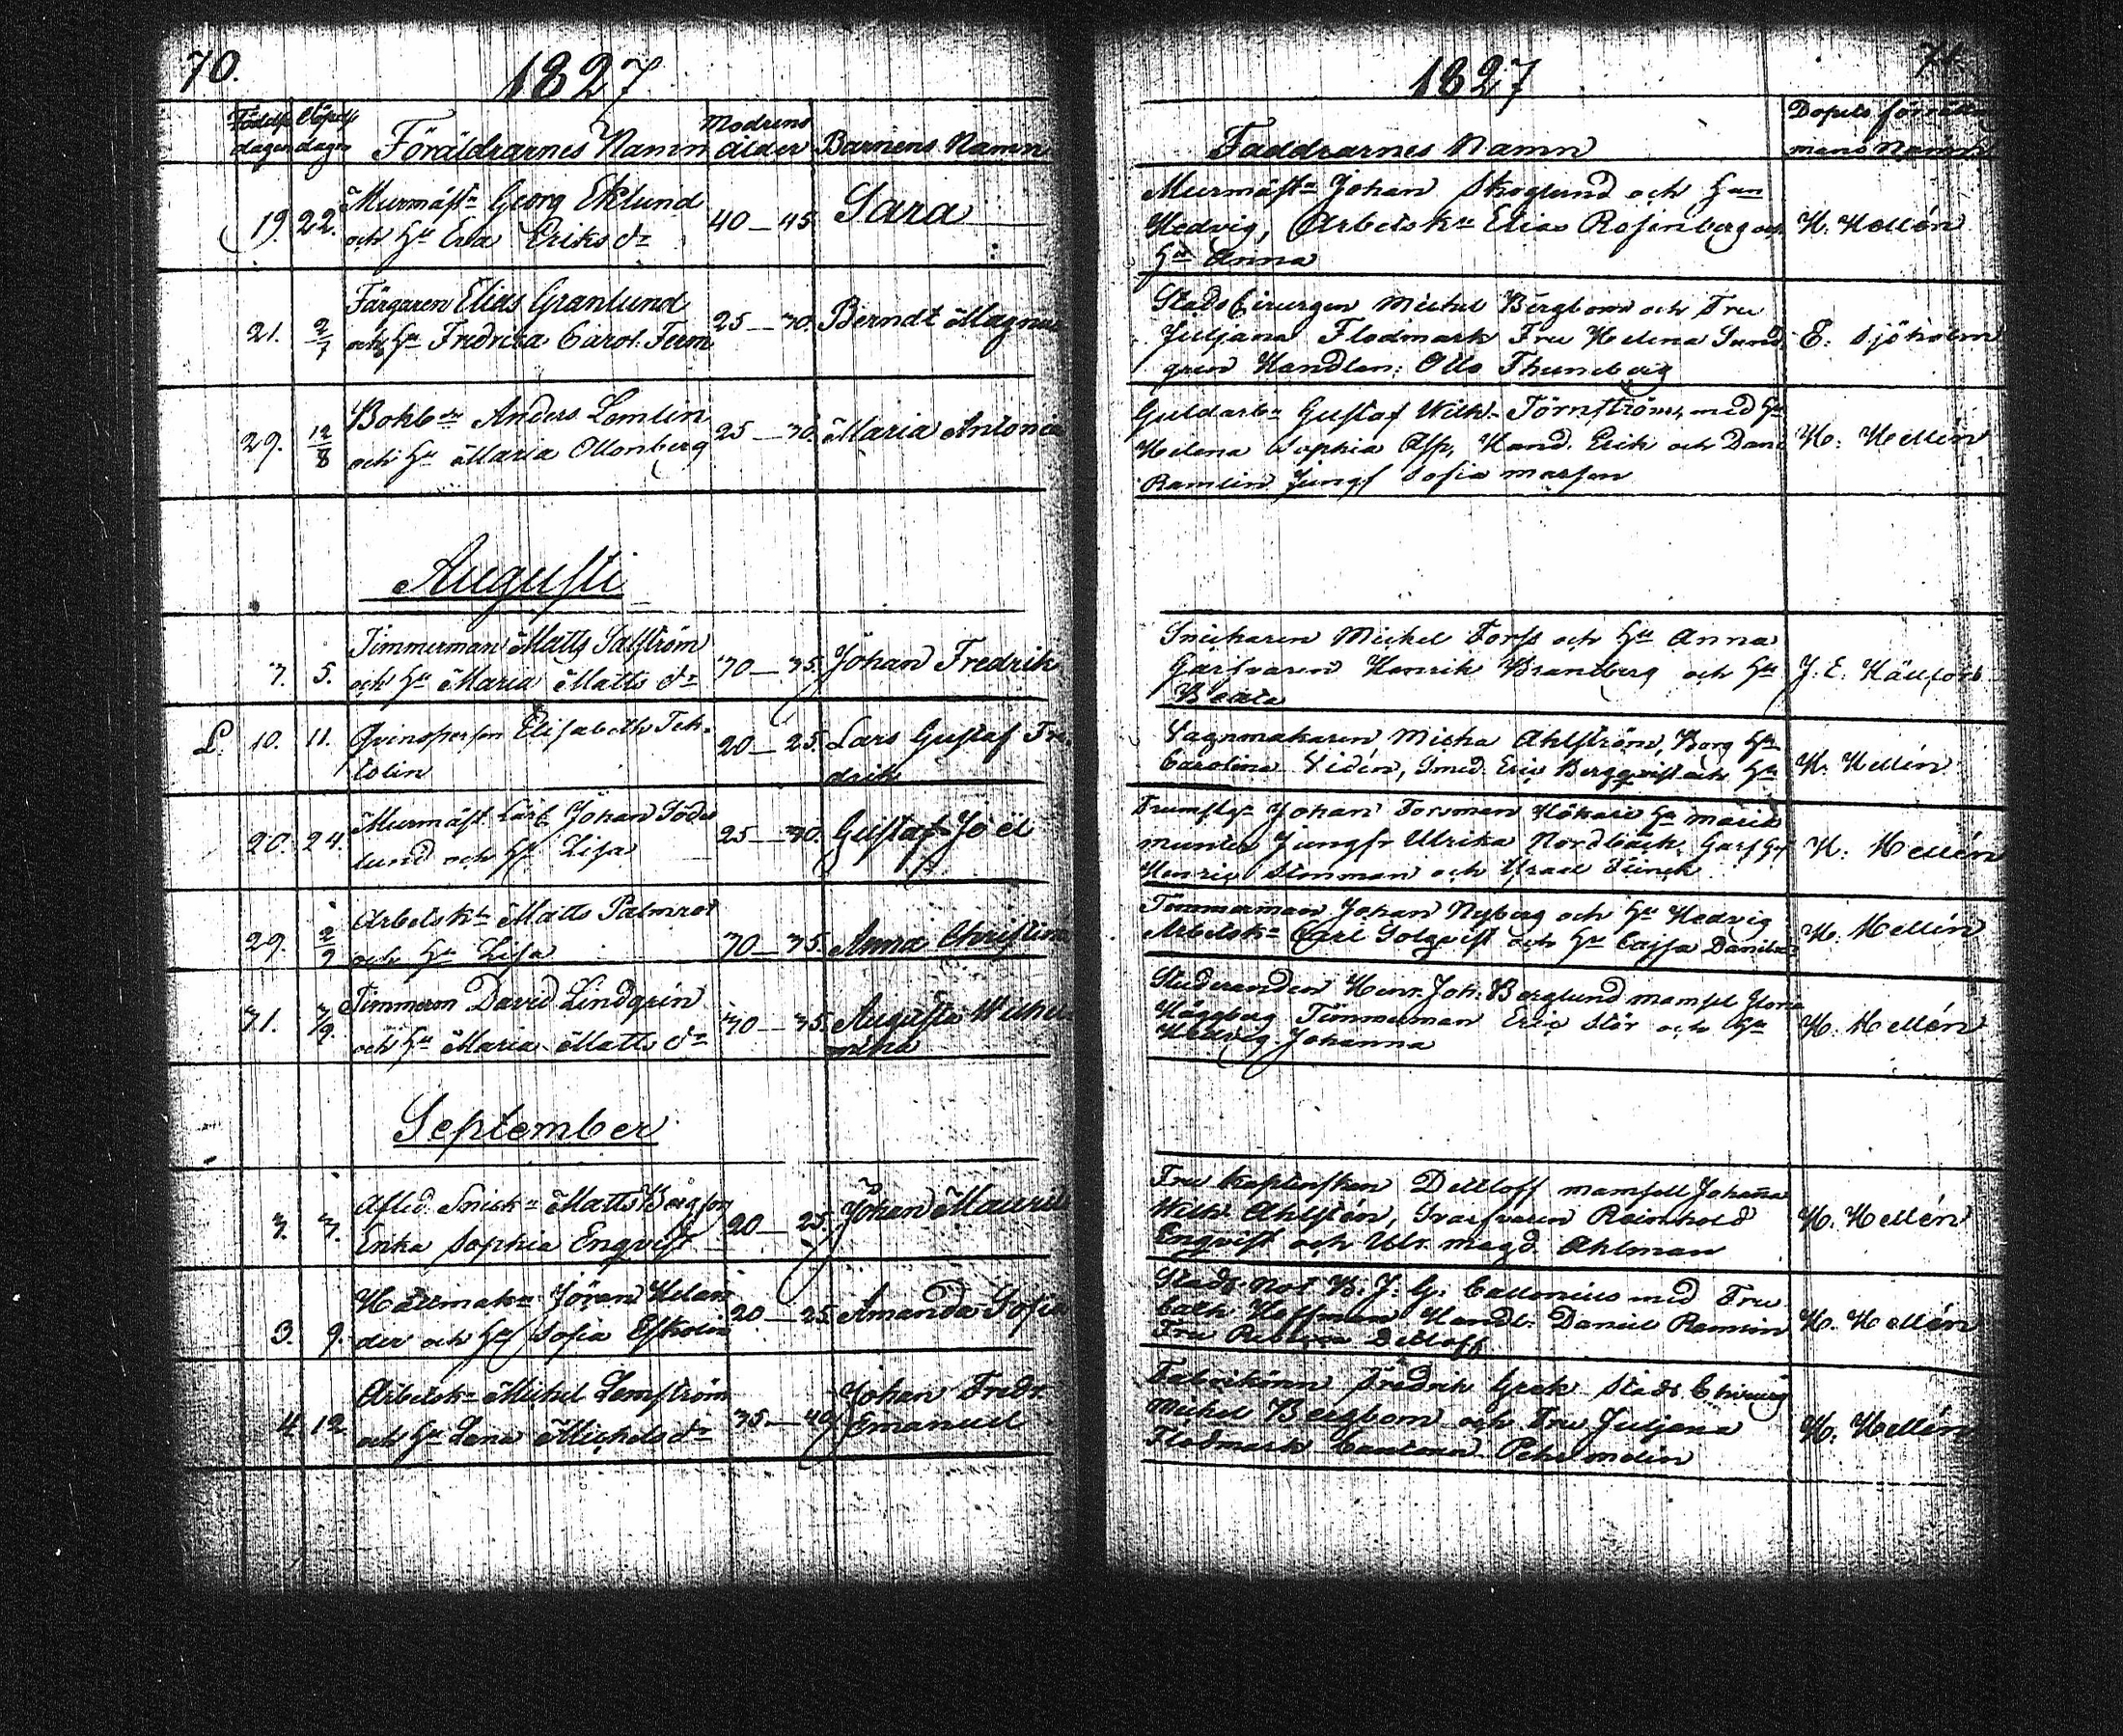 70.
1827
Födelse dagen
Döpelse dagen
Föräldrarnes Namn
Modrens ålder
Barnens Namn
19. 22. Murmäst:n Georg Eklund
och H:u Eva Eriks d:r
40—45.
Sara
21. 2/7 Färgaren Elias Granlund
och H:u Fredrica Carol. Ferm
25—30.
Berndt Magnus
29. 12/8 Bokb:n Anders Lemlin
och H:u Maria Ottonberg
25—30.
Maria Antonia
Augusti
3. 5. Timmerman Matts Salström
och H:u Maria Matts d:r
30—35.
Johan Fredrik
L. 10. 11. Qvinsperson Elisabeth Tek-
tolin
20—25.
Lars Gustaf Fre-
drik
20. 24. Murmäst. Lärl. Johan Söder
lund och H:u Lisa
25—30.
Gustaf Joël
29. 2/9 Arbetsk:n Matts Palmrot
och H:u Lisa
30—35.
Anna Christina
31. 3/9. Timmerm David Lindqrin
och H:u Maria Matts d:r
30—35.
Augusta Wilhel
mina
September
3. 3. Afled. Snick:n Matts Bergson
Enka Sophia Engvist
20—25.
Johan Mauritz
3. 9. Hattmak:n Jöran Helan
der och H:u Sofia Eskolin
20—25.
Amanda Sofia
4. 12 Arbetsk:n Michel Lemström
och H:u Lena Michels d:r
35—40
Johan Fredr.
Emanuel
71.
1827
Faddrarnes Namn
Dopets förrättn
mans Namn
Murmäst:n Johan Skoglund och H:un
Hedvig, Arbetsk:n Elias Rosenberg och
H:u Anna
H. Hellén
Stads Cirurgen Mickel Bergbom och Fru
Juljana Flodmark Fru Helena Sund-
gren Handlan: Otto Thuneberg
E. Sjöholm
Guldarb:n Gustaf Wilh. Törnström, med H:u
Helena Sophia Asp, Hand. Erik och Dan
Ramlin Jungf Sofia
H. Hellén
Snickaren Mickel Forss och H:u Anna
Garfvaren Henrik Brandberg och H:u
Beata
J. E. Hällfors
Vagnmakaren Micha Ahlström, Borg H:u
Carolina Widén, Smed. Eric Bergqvist och H:u
H. Hellén
Johan Forsman Hökare H:u Maria
Jungfr Ulrika Nordbäck, Garf Ges
Henric Stenman och
H. Hellén
Timmerman Johan Nyberg och H:u Hedvig
Arbetsk:n Carl Solqvist och H:u Cajsa Daniels
H. Hellén
Studeranden Henr. Joh. Berglund Mamsel
Häggberg Timmerman Eric Stör och H:u
Hedvig Johanna
H. Hellén
Fru Dettloff Mamsell Johanna
Wilh. Ahlstén, Garfvaren Reinhold
Engvist och Ulr. Magd. Ahlman
H. Hellén
Stads Not B. J. G. Callonius med Fru
Cath Hoffman Handl. Daniel Ramlin
Fru Dettloff
H. Hellén
Fabrikören Fredrik Grek Stads Chirurg
Michel Bergbom och Fru Juljana
Flodmark Petr. Molin
H. Hellén